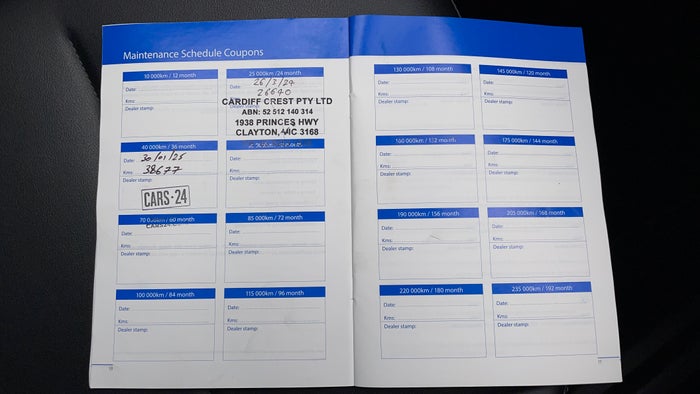 Maintenance Schedule Coupons
10 000km / 12 month
Date:
Kms:
Dealer stamp:
25 000km /24 month
Date: 26/3/24
26640
CARDIFF CREST PTY LTD
ABN: 52 512 140 314
1938 PRINCES HWY
CLAYTON, VIC 3168
40 000km / 36 month
Date: 30/01/25
Kms: 38677
Dealer stamp:
CARS·24
Date:
Kms:
Dealer stamp:
70 000km / 60 month
Date:
Kms:
Dealer stamp:
85 000km / 72 month
Date:
Kms:
Dealer stamp:
100 000km / 84 month
Date:
Kms:
Dealer stamp:
115 000km / 96 month
Date:
Kms:
Dealer stamp:
130 000km / 108 month
Date:
Kms:
Dealer stamp:
145 000km / 120 month
Date:
Kms:
Dealer stamp:
160 000km / 132 month
Date:
Kms:
Dealer stamp:
175 000km / 144 month
Date:
Kms:
Dealer stamp:
190 000km / 156 month
Date:
Kms:
Dealer stamp:
205 000km / 168 month
Date:
Kms:
Dealer stamp:
220 000km / 180 month
Date:
Kms:
Dealer stamp:
235 000km / 192 month
Date:
Kms:
Dealer stamp: